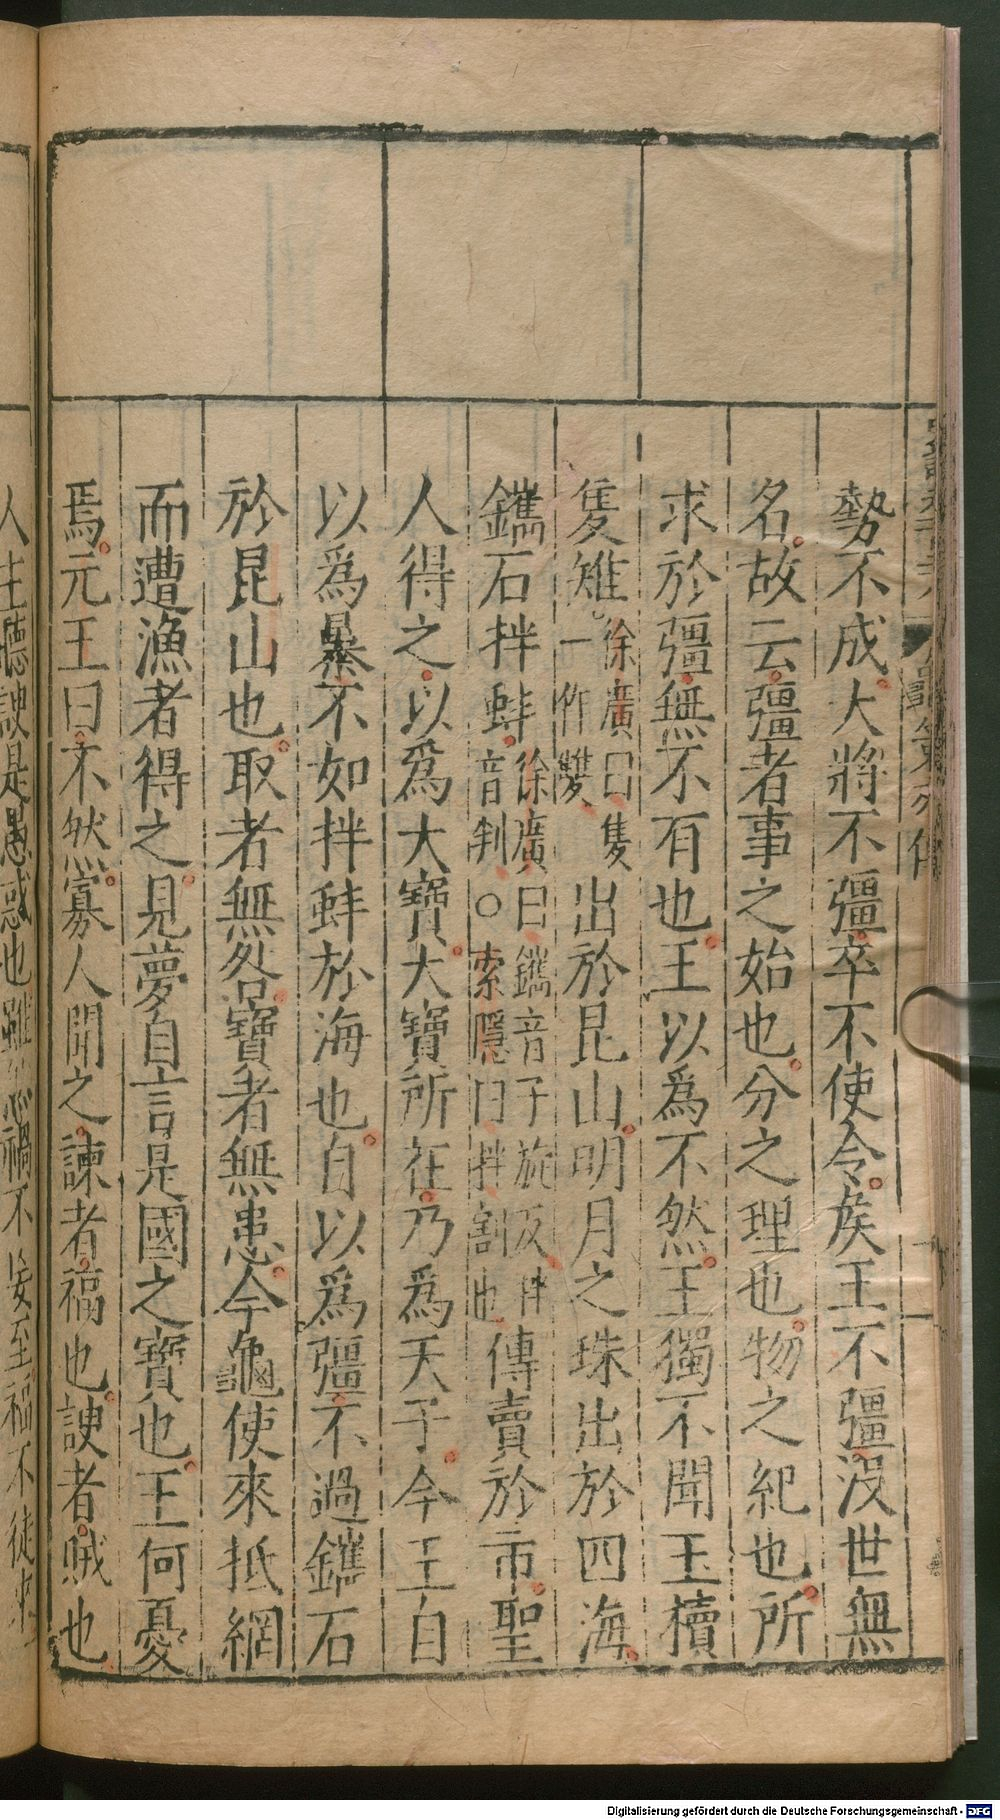 勢不成大將不彊卒不使令侯王不彊沒世無
名故云彊者事之始也分之理也物之紀也所
求於彊無不有也王以爲不然王獨不聞玉櫝
隻雉徐廣曰隻一作雙出於昆山明月之珠出於四海
鑴石拌蚌徐廣曰鑴音子旋反拌音判○索隱曰拌割也傳賣於市聖
人得之以爲大寶大寶所在乃爲天子今王自
以爲暴不如拌蚌於海也自以爲彊不過鑴石
於昆山也取者無咎寶者無患今龜使來抵網
而遭漁者得之見夢自言是國之寶也王何憂
焉元王曰不然寡人聞之諫者福也諛者賊也
人主聽諛是愚惑也雖然禍不妄至福不徒來
Digitalisierung gefördert durch die Deutsche Forschungsgemeinschaft - DFG